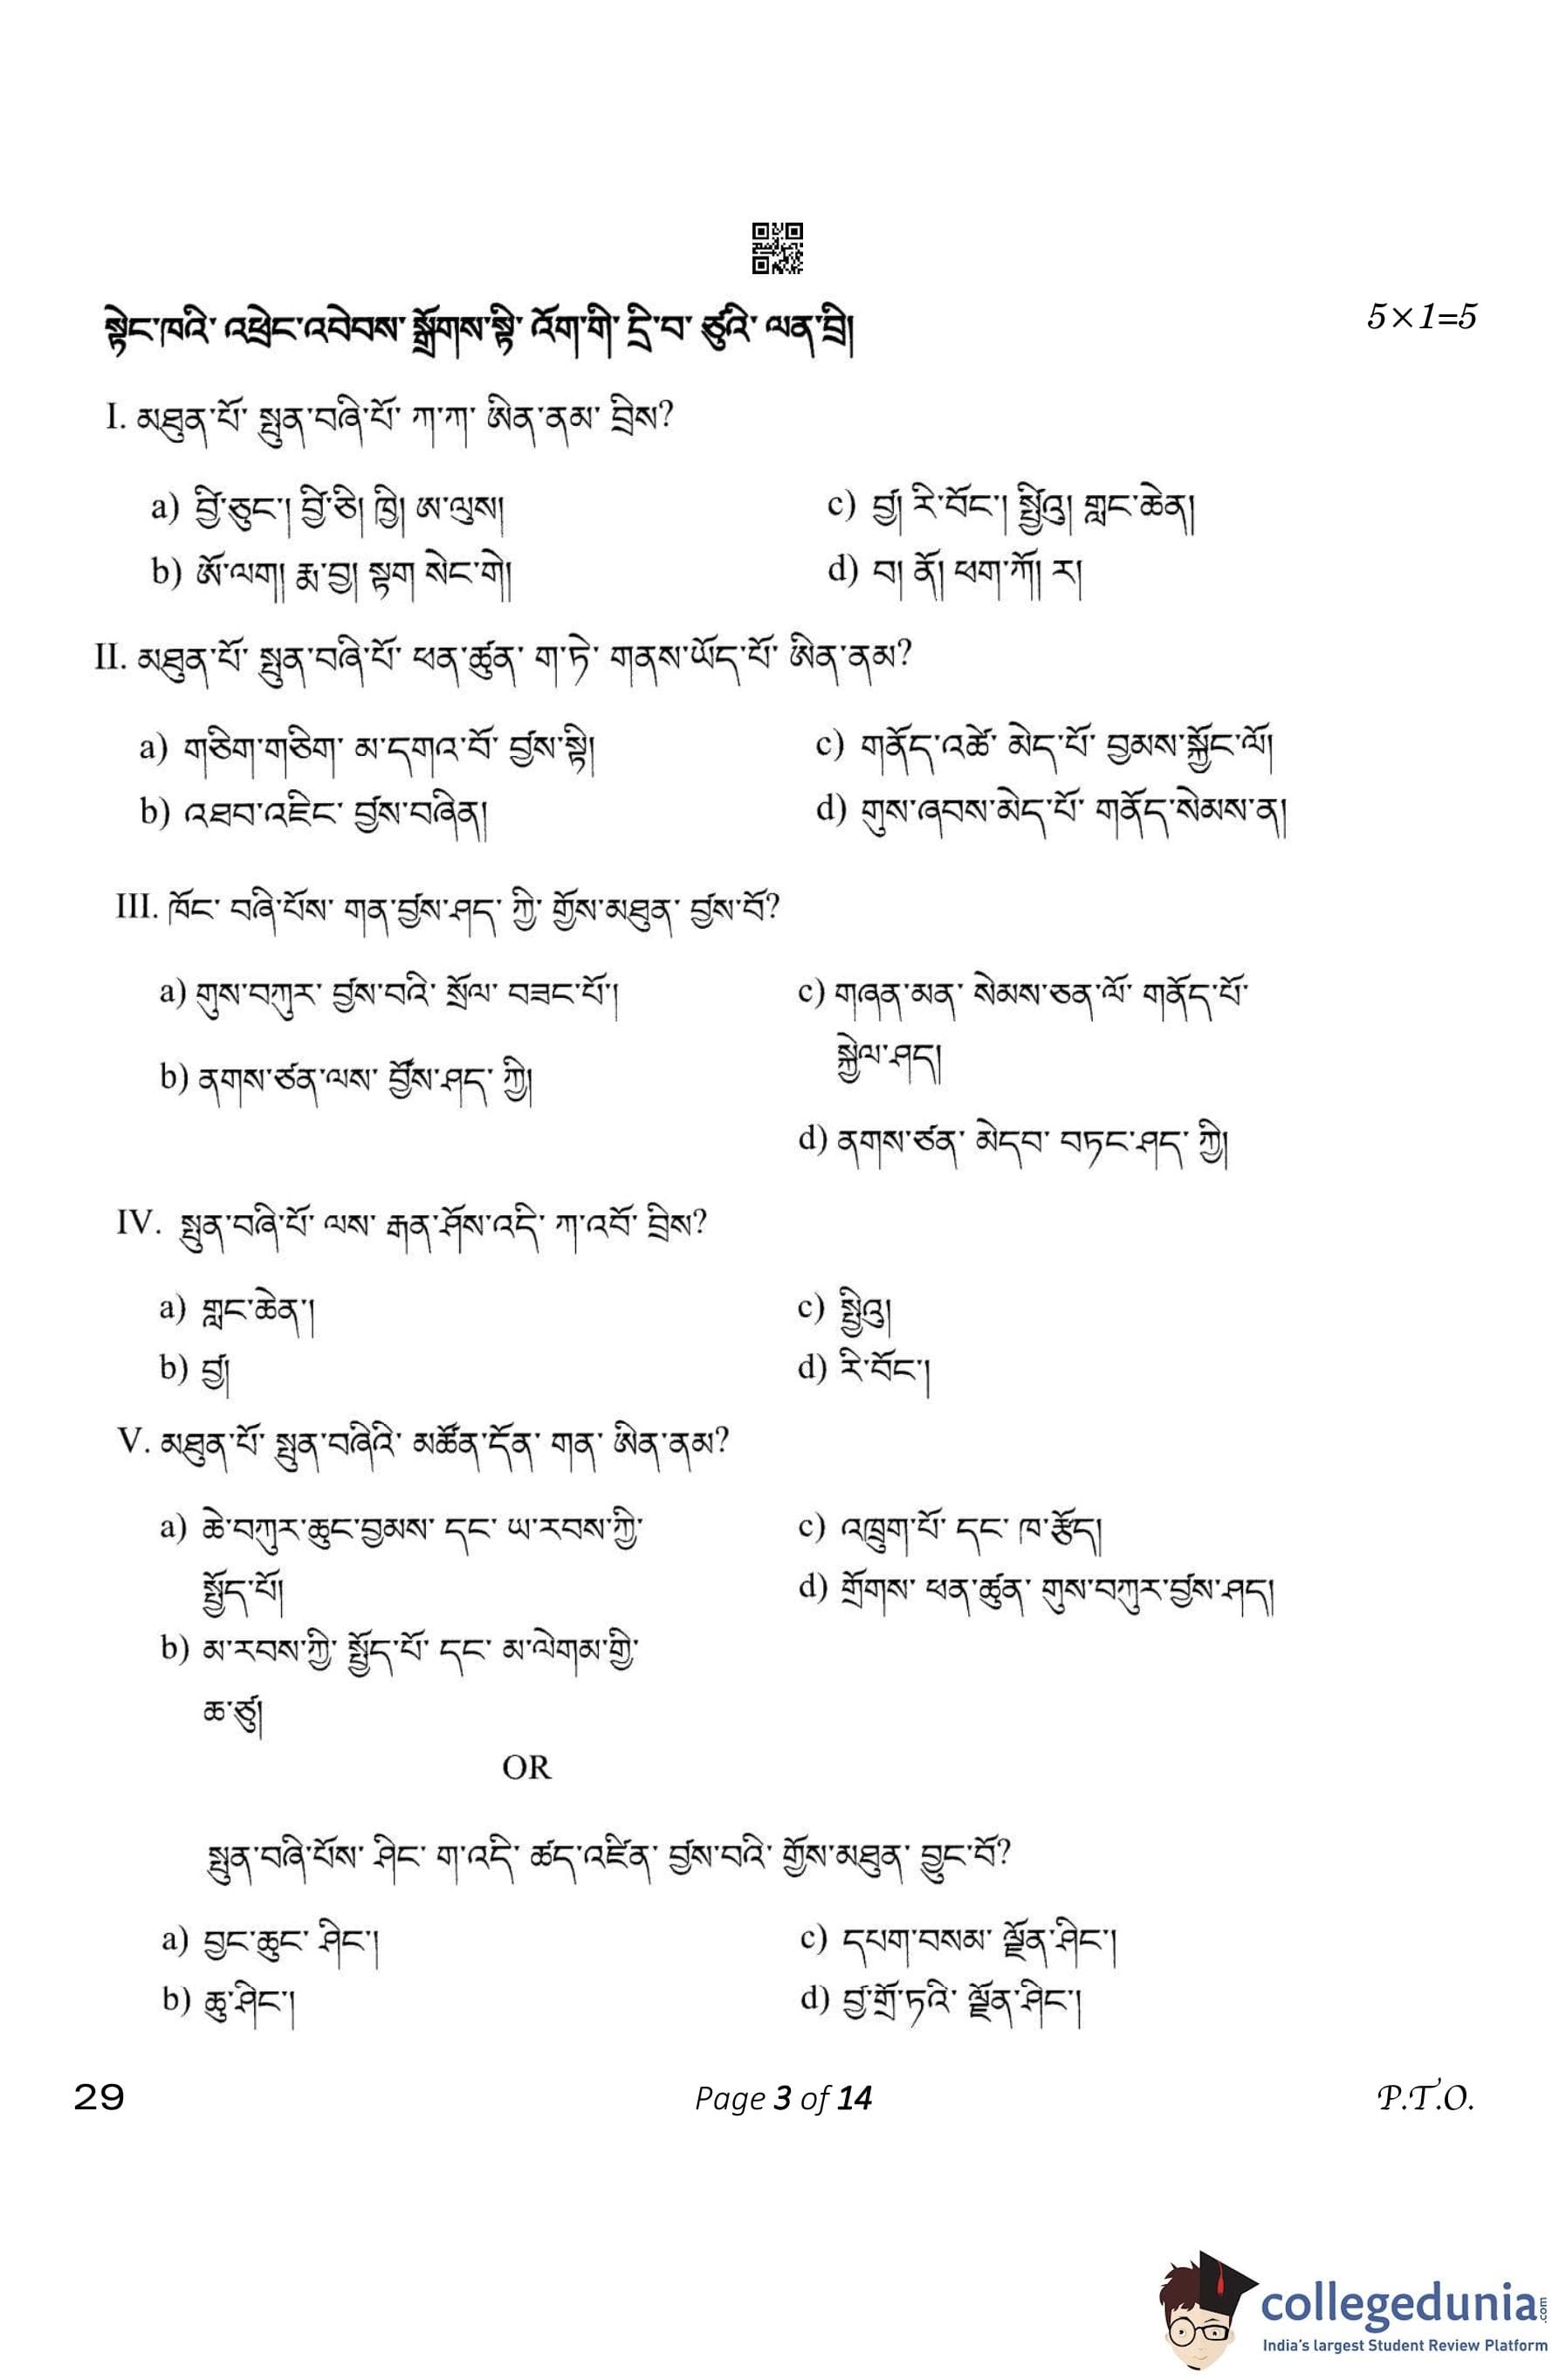 སྟེང་ཁའི་ འཕྲེང་འབེབས་ སྒྲོགས་སྟི་ འོག་གི་ དྲི་བ་ ཙུའི་ ལན་བྲི།
5×1=5
I. མཐུན་པོ་ སྤུན་བཞི་པོ་ ཀ་ཀ་ ཨིན་ནམ་ བྲིས?
a) བྱི་ཅུང་། བྱི་ཅི། ཁྱི། ཨ་ལུས།
c) བྱ། རི་བོང་། སྤྲིའུ། གླང་ཆེན།
b) ཨོ་ལག། རྨ་བྱ། སྟག སེང་གེ།
d) བ། ནོ། ཕག་ཀོ། ར།
II. མཐུན་པོ་ སྤུན་བཞི་པོ་ ཕན་ཚུན་ ག་ཏེ་ གནས་ཡོད་པོ་ ཨིན་ནམ?
a) གཅིག་གཅིག་ མ་དགའ་བོ་ བྱས་སྟི།
c) གནོད་འཚེ་ མེད་པོ་ བྱམས་སྐྱོང་ལོ།
b) འཐབ་འཛིང་ བྱས་བཞིན།
d) གུས་ཞབས་མེད་པོ་ གནོད་སེམས་ན།
III. ཁོང་ བཞི་པོས་ གན་བྱས་ཤད་ ཀྱི་ གྲོས་མཐུན་ བྱས་བོ?
a) གུས་བཀུར་ བྱས་བའི་ སྲོལ་ བཟང་པོ་།
c) གཞན་མན་ སེམས་ཅན་ལོ་ གནོད་པོ་
སྐྱེལ་ཤད།
b) ནགས་ཙན་ལས་ བྲོས་ཤད་ ཀྱི།
d) ནགས་ཙན་ མེདབ་ བཏང་ཤད་ ཀྱི།
IV. སྤུན་བཞི་པོ་ ལས་ རྒན་ཤོས་འདི་ ཀ་འབོ་ བྲིས?
a) གླང་ཆེན་།
c) སྤྲིའུ།
b) བྱ།
d) རི་བོང་།
V. མཐུན་པོ་ སྤུན་བཞིའི་ མཚོན་དོན་ གན་ ཨིན་ནམ?
a) ཆེ་བཀུར་ཆུང་བྱམས་ དང་ ཡ་རབས་ཀྱི་
སྤྱོད་པོ།
c) འཁྲུག་པོ་ དང་ ཁ་རྩོད།
d) གྲོགས་ ཕན་ཚུན་ གུས་བཀུར་བྱས་ཤད།
b) མ་རབས་ཀྱི་ སྤྱོད་པོ་ དང་ མ་ལེགམ་གྱི་
ཆ་ཙུ།
OR
སྤུན་བཞི་པོས་ ཤིང་ ག་འདི་ ཚད་འཛིན་ བྱས་བའི་ གྲོས་མཐུན་ བྱུང་བོ?
a) བྱང་ཆུང་ ཤིང་།
c) དཔག་བསམ་ ལྗོན་ཤིང་།
b) ཆུ་ཤིང་།
d) བྱ་གྲོ་ཏའི་ ལྗོན་ཤིང་།
29
Page 3 of 14
P.T.O.
collegedunia.com
India's largest Student Review Platform